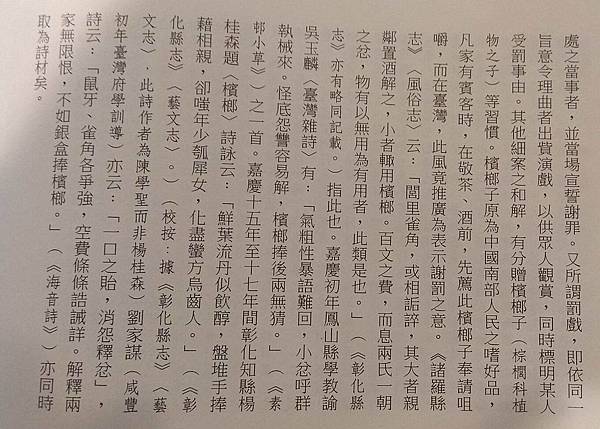 處之當事者，並當場宣誓謝罪。又所謂罰戲，即依同一
旨意令理曲者出貲演戲，以供眾人觀賞，同時標明某人
受罰事由。其他細案之和解，有分贈檳榔子（棕櫚科植
物之子）等習慣。檳榔子原為中國南部人民之嗜好品，
凡家有賓客時，在敬茶、酒前，先薦此檳榔子奉請咀
嚼，而在臺灣，此風竟推廣為表示謝罰之意。《諸羅縣
志》〈風俗志〉云：「閭里雀角，或相詬誶，其大者親
鄰置酒解之，小者輒用檳榔。百文之費，而息兩氏一朝
之忿，物有以無用為有用者，此類是也。」（《彰化縣
志》亦有略同記載。）指此也。嘉慶初年鳳山縣學教諭
吳玉麟〈臺灣雜詩〉有：「氣粗性暴語難回，小忿呼群
執械來。怪底怨讐容易解，檳榔捧後兩無猜。」（《素
邨小草》）之一首。嘉慶十五年至十七年間彰化知縣楊
桂森題〈檳榔〉詩詠云：「鮮葉流丹似飲醇，盤堆手捧
藉相親，卻嗤年少瓠犀女，化盡蠻方烏齒人。」（《彰
化縣志》〈藝文志〉。）（校按：據《彰化縣志》〈藝
文志〉，此詩作者為陳學聖而非楊桂森）劉家謀（咸豐
初年臺灣府學訓導）亦云：「一口之貽，消怨釋忿」，
詩云：「鼠牙、雀角各爭強，空費條條誥誡詳。解釋兩
家無限恨，不如銀盒捧檳榔。」（《海音詩》）亦同時
取為詩材矣。